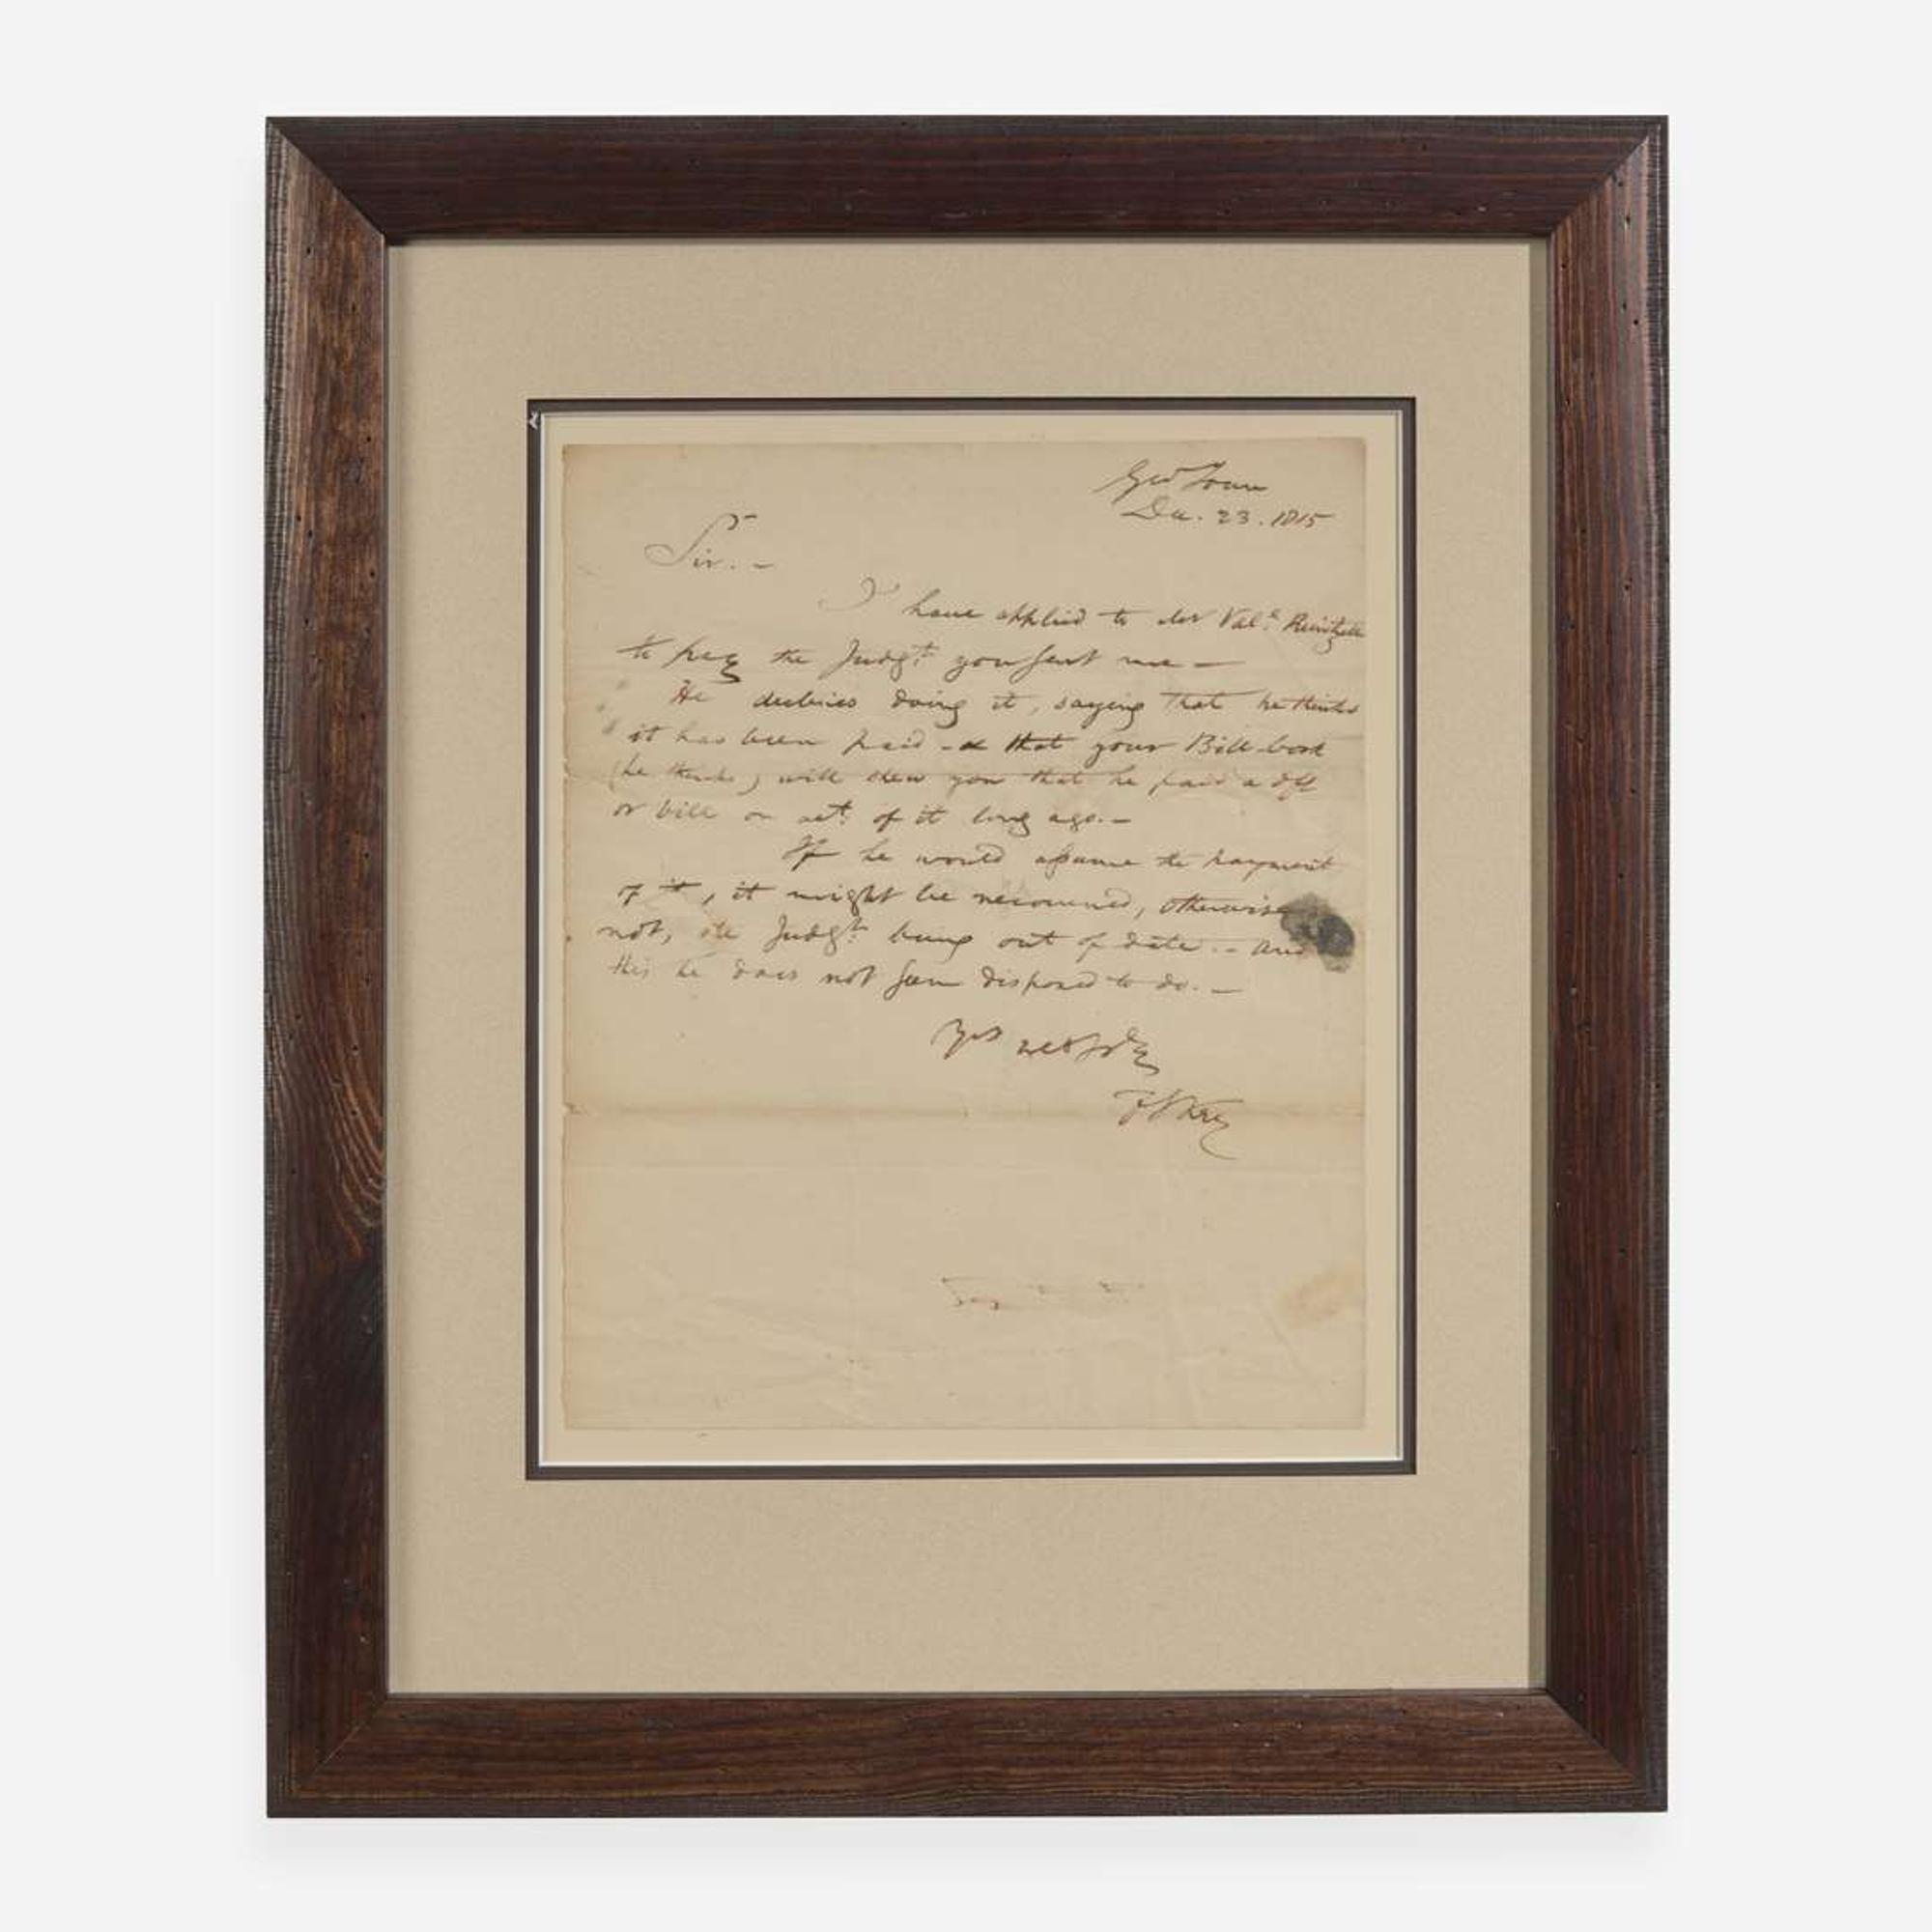 Geo Town
Dec. 23. 1815
Sir. -
I have applied to Mr Val: Reintzell
to pay the Judgt. you sent me -
He declines doing it, saying that he thinks
it has been paid - & that your Bill-book
(he thinks) will shew you that he paid a dft
or bill on act. of it long ago. -
If he would assume the payment
of it, it might be recovered, otherwise
not, the Judgt. being out of date. - and
this he does not seem disposed to do. -
Yrs
F S Key